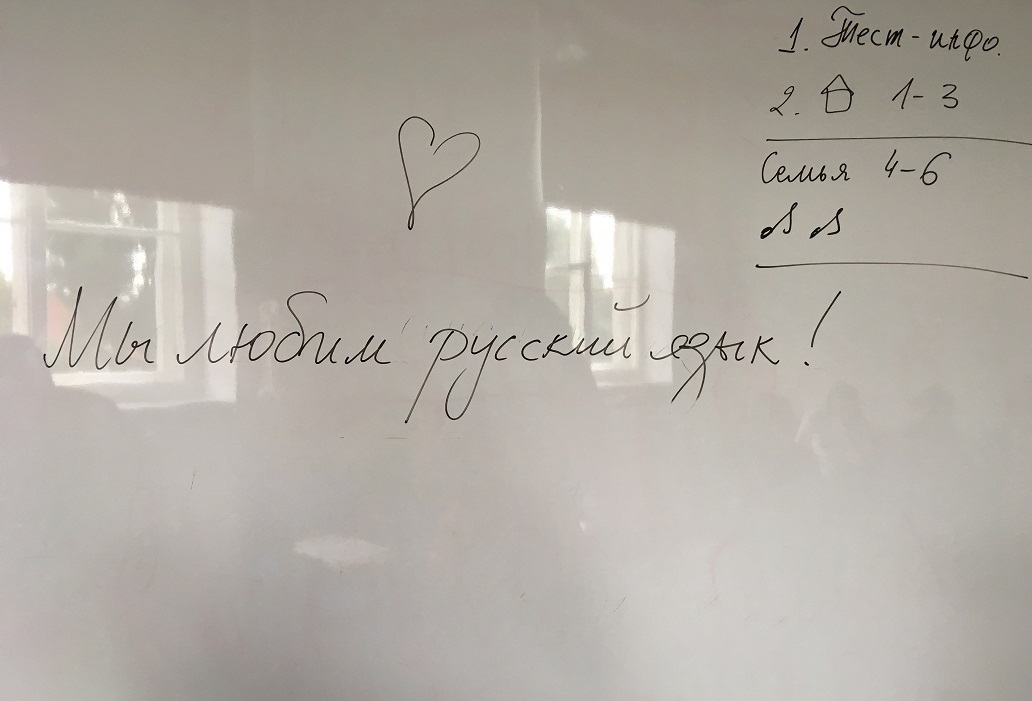 1. Тест-инфо.
2. 1-3
Семья 4-6
Мы любим русский язык!